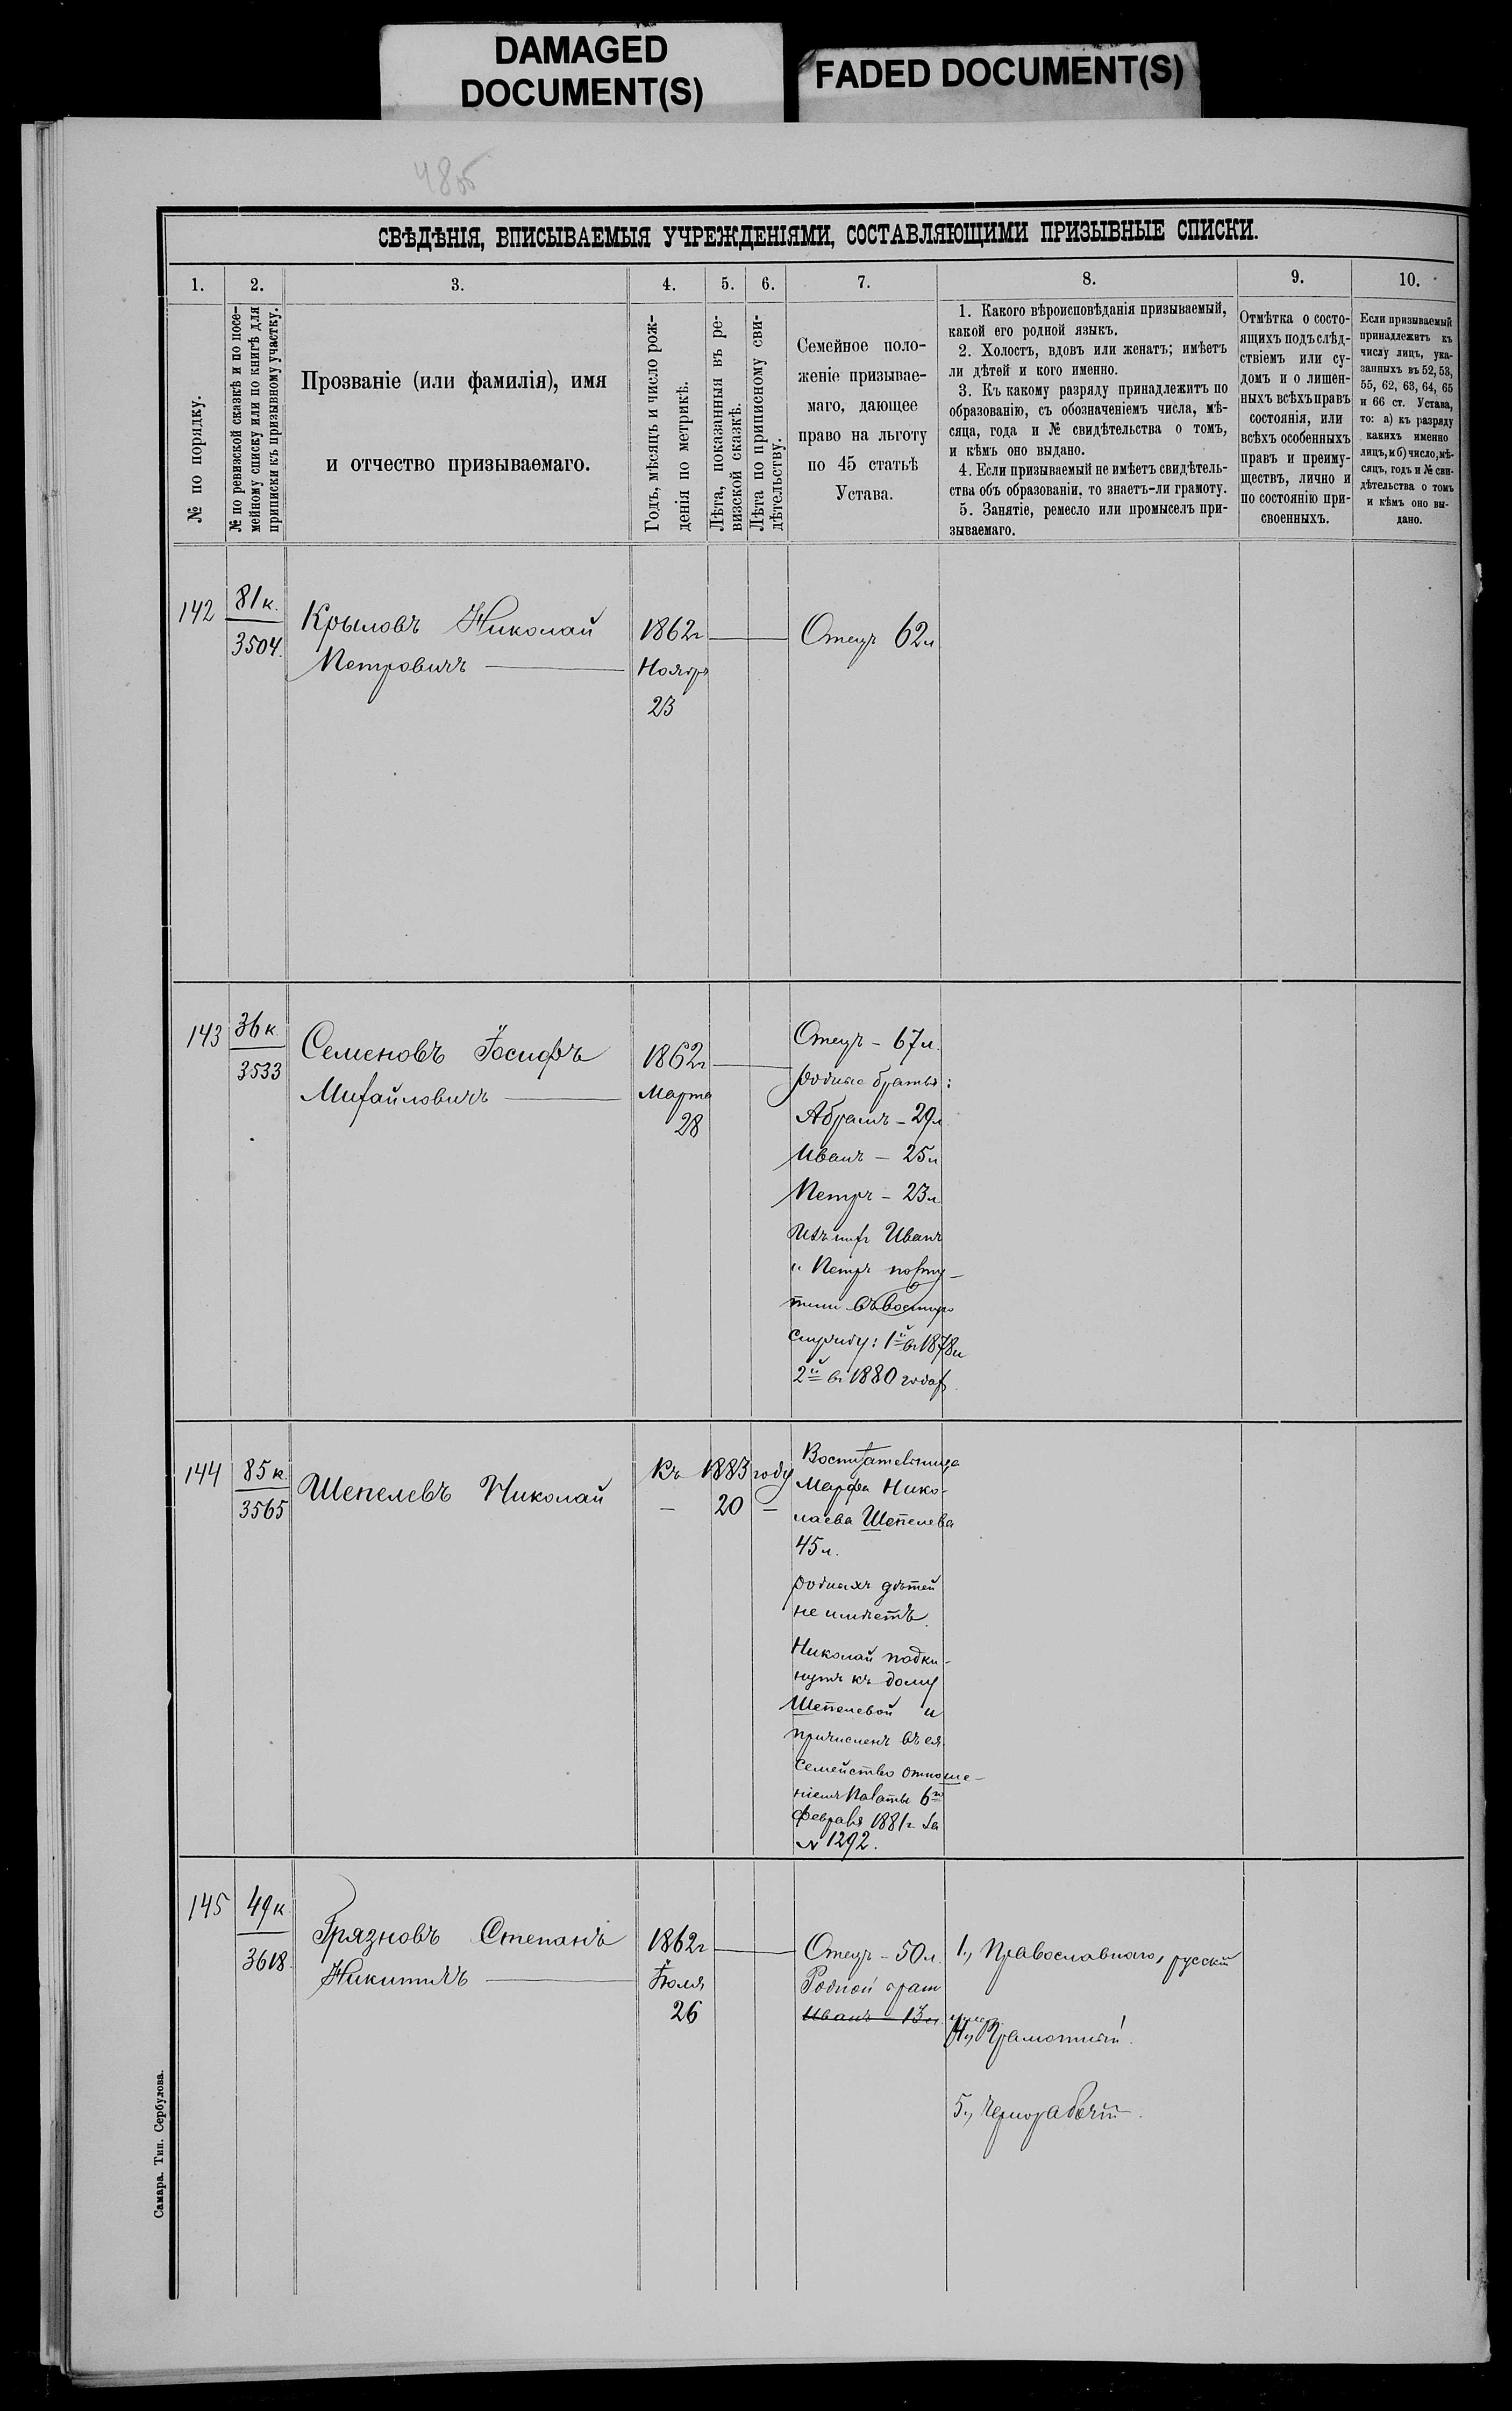 DAMAGED
DOCUMENT(S)
FADED DOCUMENT(S)
4805
СВѢДѢНІЯ, ВПИСЫВАЕМЫЯ УЧРЕЖДЕНІЯМИ, СОСТАВЛЯЮЩИМИ ПРИЗЫВНЫЕ СПИСКИ.
1.
2.
3.
4.
5.
6.
7.
8.
9.
10.
№ по порядку.
№ по ревизской сказкѣ и по посе-
мейному списку или по книгѣ для
приписки къ призывному участку.
Прозваніе (или фамилія), имя
и отчество призываемаго.
Годъ, мѣсяцъ и число рож-
денія по метрикѣ.
Лѣта, показанныя въ ре-
визской сказкѣ.
Лѣта по приписному сви-
дѣтельству.
Семейное поло-
женіе призывае-
маго, дающее
право на льготу
по 45 статьѣ
Устава.
1. Какого вѣроисповѣданія призываемый,
какой его родной языкъ.
2. Холостъ, вдовъ или женатъ; имѣетъ
ли дѣтей и кого именно.
3. Къ какому разряду принадлежитъ по
образованію, съ обозначеніемъ числа, мѣ-
сяца, года и № свидѣтельства о томъ,
и кѣмъ оно выдано.
4. Если призываемый не имѣетъ свидѣтель-
ства объ образованіи, то знаетъ-ли грамоту.
5. Занятіе, ремесло или промыселъ при-
зываемаго.
Отмѣтка о состо-
ящихъ подъ слѣд-
ствіемъ или су-
домъ и о лишен-
ныхъ всѣхъ правъ
состоянія, или
всѣхъ особенныхъ
правъ и преиму-
ществъ, лично и
по состоянію при-
своенныхъ.
Если призываемый
принадлежитъ къ
числу лицъ, ука-
занныхъ въ 52, 53,
55, 62, 63, 64, 65
и 66 ст. Устава,
то: а) къ разряду
какихъ именно
лицъ, и б) число, мѣ-
сяцъ, годъ и № сви-
дѣтельства о томъ
и кѣмъ оно вы-
дано.
142
81к.
3504.
Крыловъ Николай
Петровичъ
1862г
Ноябр
23
Отецъ 62л
143
36к.
3533
Семеновъ Іосифъ
Михайловичъ
1862г
Марта
28
Отецъ - 67л.
родные братья:
Абрамъ - 29л
Иванъ - 25л
Петръ - 23л
Изъ нихъ Иванъ
и Петръ посту-
пили въ военную
службу: 1й въ 1878 и
2й въ 1880 годах
144
85к.
3565
Шепелевъ Николай
Къ 1883 году
- 20 -
Воспитательница
Марфа Нико-
лаева Шепелева
45л.
родныхъ дѣтей
не имѣетъ.
Николай подки-
нутъ къ дому
Шепелевой и
причисленъ въ ея
семейство отноше-
ніемъ Палаты 6го
Февраля 1881г за
№ 1292.
145
49к
3618.
Грязновъ Степанъ
Никитичъ
1862г
Іюля
26
Отецъ - 50л.
Родной брат
Иванъ - 13л.
1., Православнаго, русскій
4., Грамотный.
5., Чернорабочій.
Самара. Тип. Сербулова.